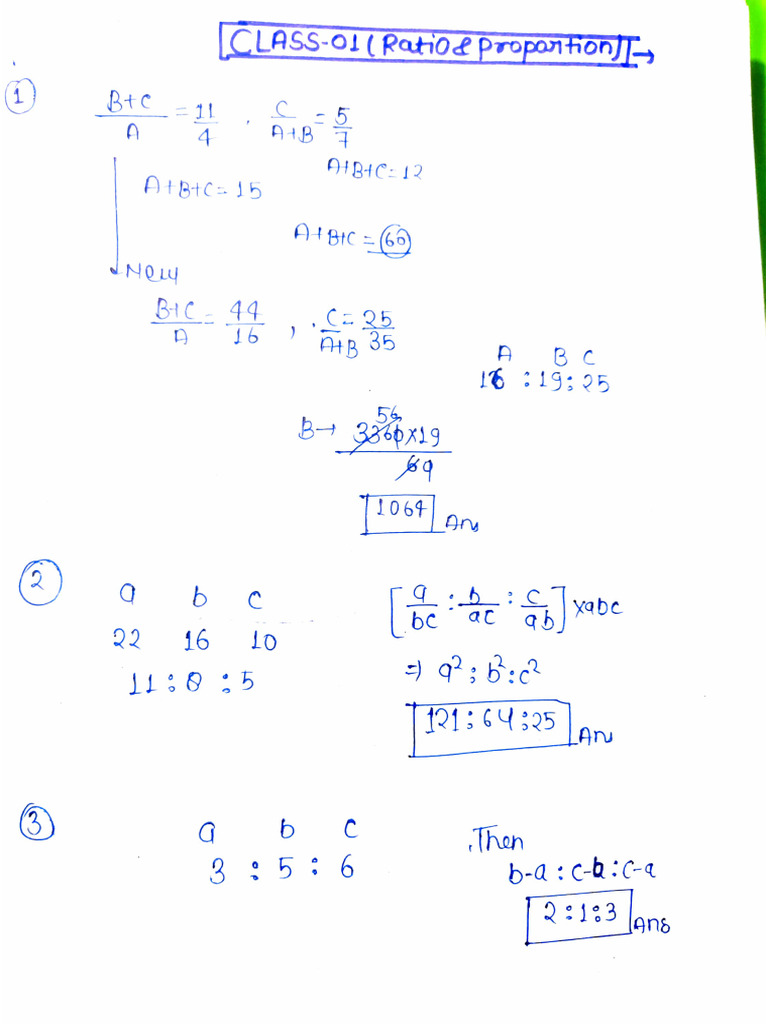 CLASS-01 (Ratio & proportion) →
1
B+C/A = 11/4 , C/A+B = 5/7
A+B+C = 15
A+B+C = 12
A+B+C = 60
New
B+C/A = 44/16 , C/A+B = 25/35
A B C
16 : 19 : 25
B → 3360×19/60
56
1064 Ans
2
a b c
22 16 10
11 : 8 : 5
[a/bc : b/ac : c/ab] × abc
⇒ a² : b² : c²
121 : 64 : 25 Ans
3
a b c
3 : 5 : 6
Then
b-a : c-b : c-a
2 : 1 : 3 Ans